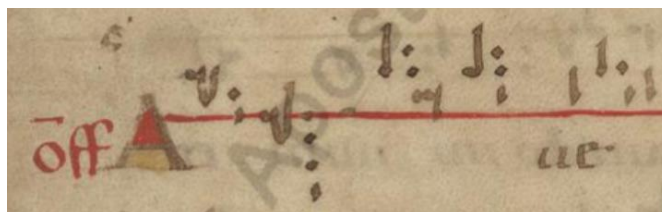 off A ue